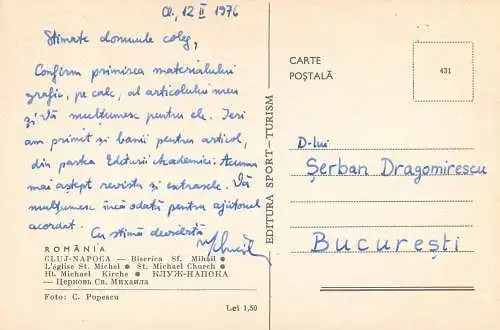 Cl., 12 II 1976
Stimate domnule coleg,
Confirm primirea materialului
grafic, pe calc, al articolului meu
și Vă mulțumesc pentru ele. Ieri
am primit și banii pentru articol,
din partea Editurii Academiei. Acuma
mai aștept revista și extrasele. Vă
mulțumesc încă odată pentru ajutorul
acordat.
Cu stimă deosebită
ROMÂNIA
CLUJ-NAPOCA — Biserica Sf. Mihail ●
L'église St. Michel ● St. Michael Church ●
Hl. Michael Kirche ● КЛУЖ-НАПОКА
— Церковь Св. Михаила
Foto: C. Popescu
Lei 1,50
EDITURA SPORT-TURISM
CARTE
POȘTALĂ
431
D-lui
Șerban Dragomirescu
București